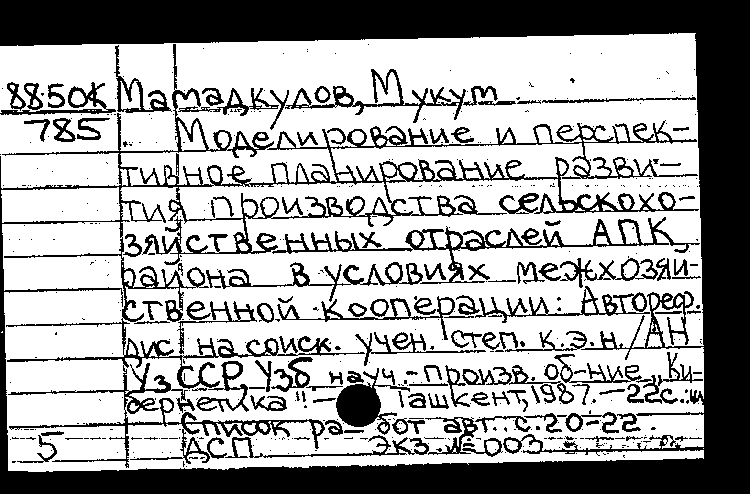 8850К Мамадкулов, Мукум
785 Моделирование и перспек-
тивное планирование разви-
тия производства сельскохо-
зяйственных отраслей АПК
района в условиях межхозяй-
ственной кооперации: Автореф.
дис на соиск. учен. степ. к.э.н. / АН
УзССР, Узб. науч.-произв. об-ние „Ки-
бернетика". — Ташкент, 1987. — 22с.:
Список работ авт.: с.20-22.
5 ДСП. экз. № 003